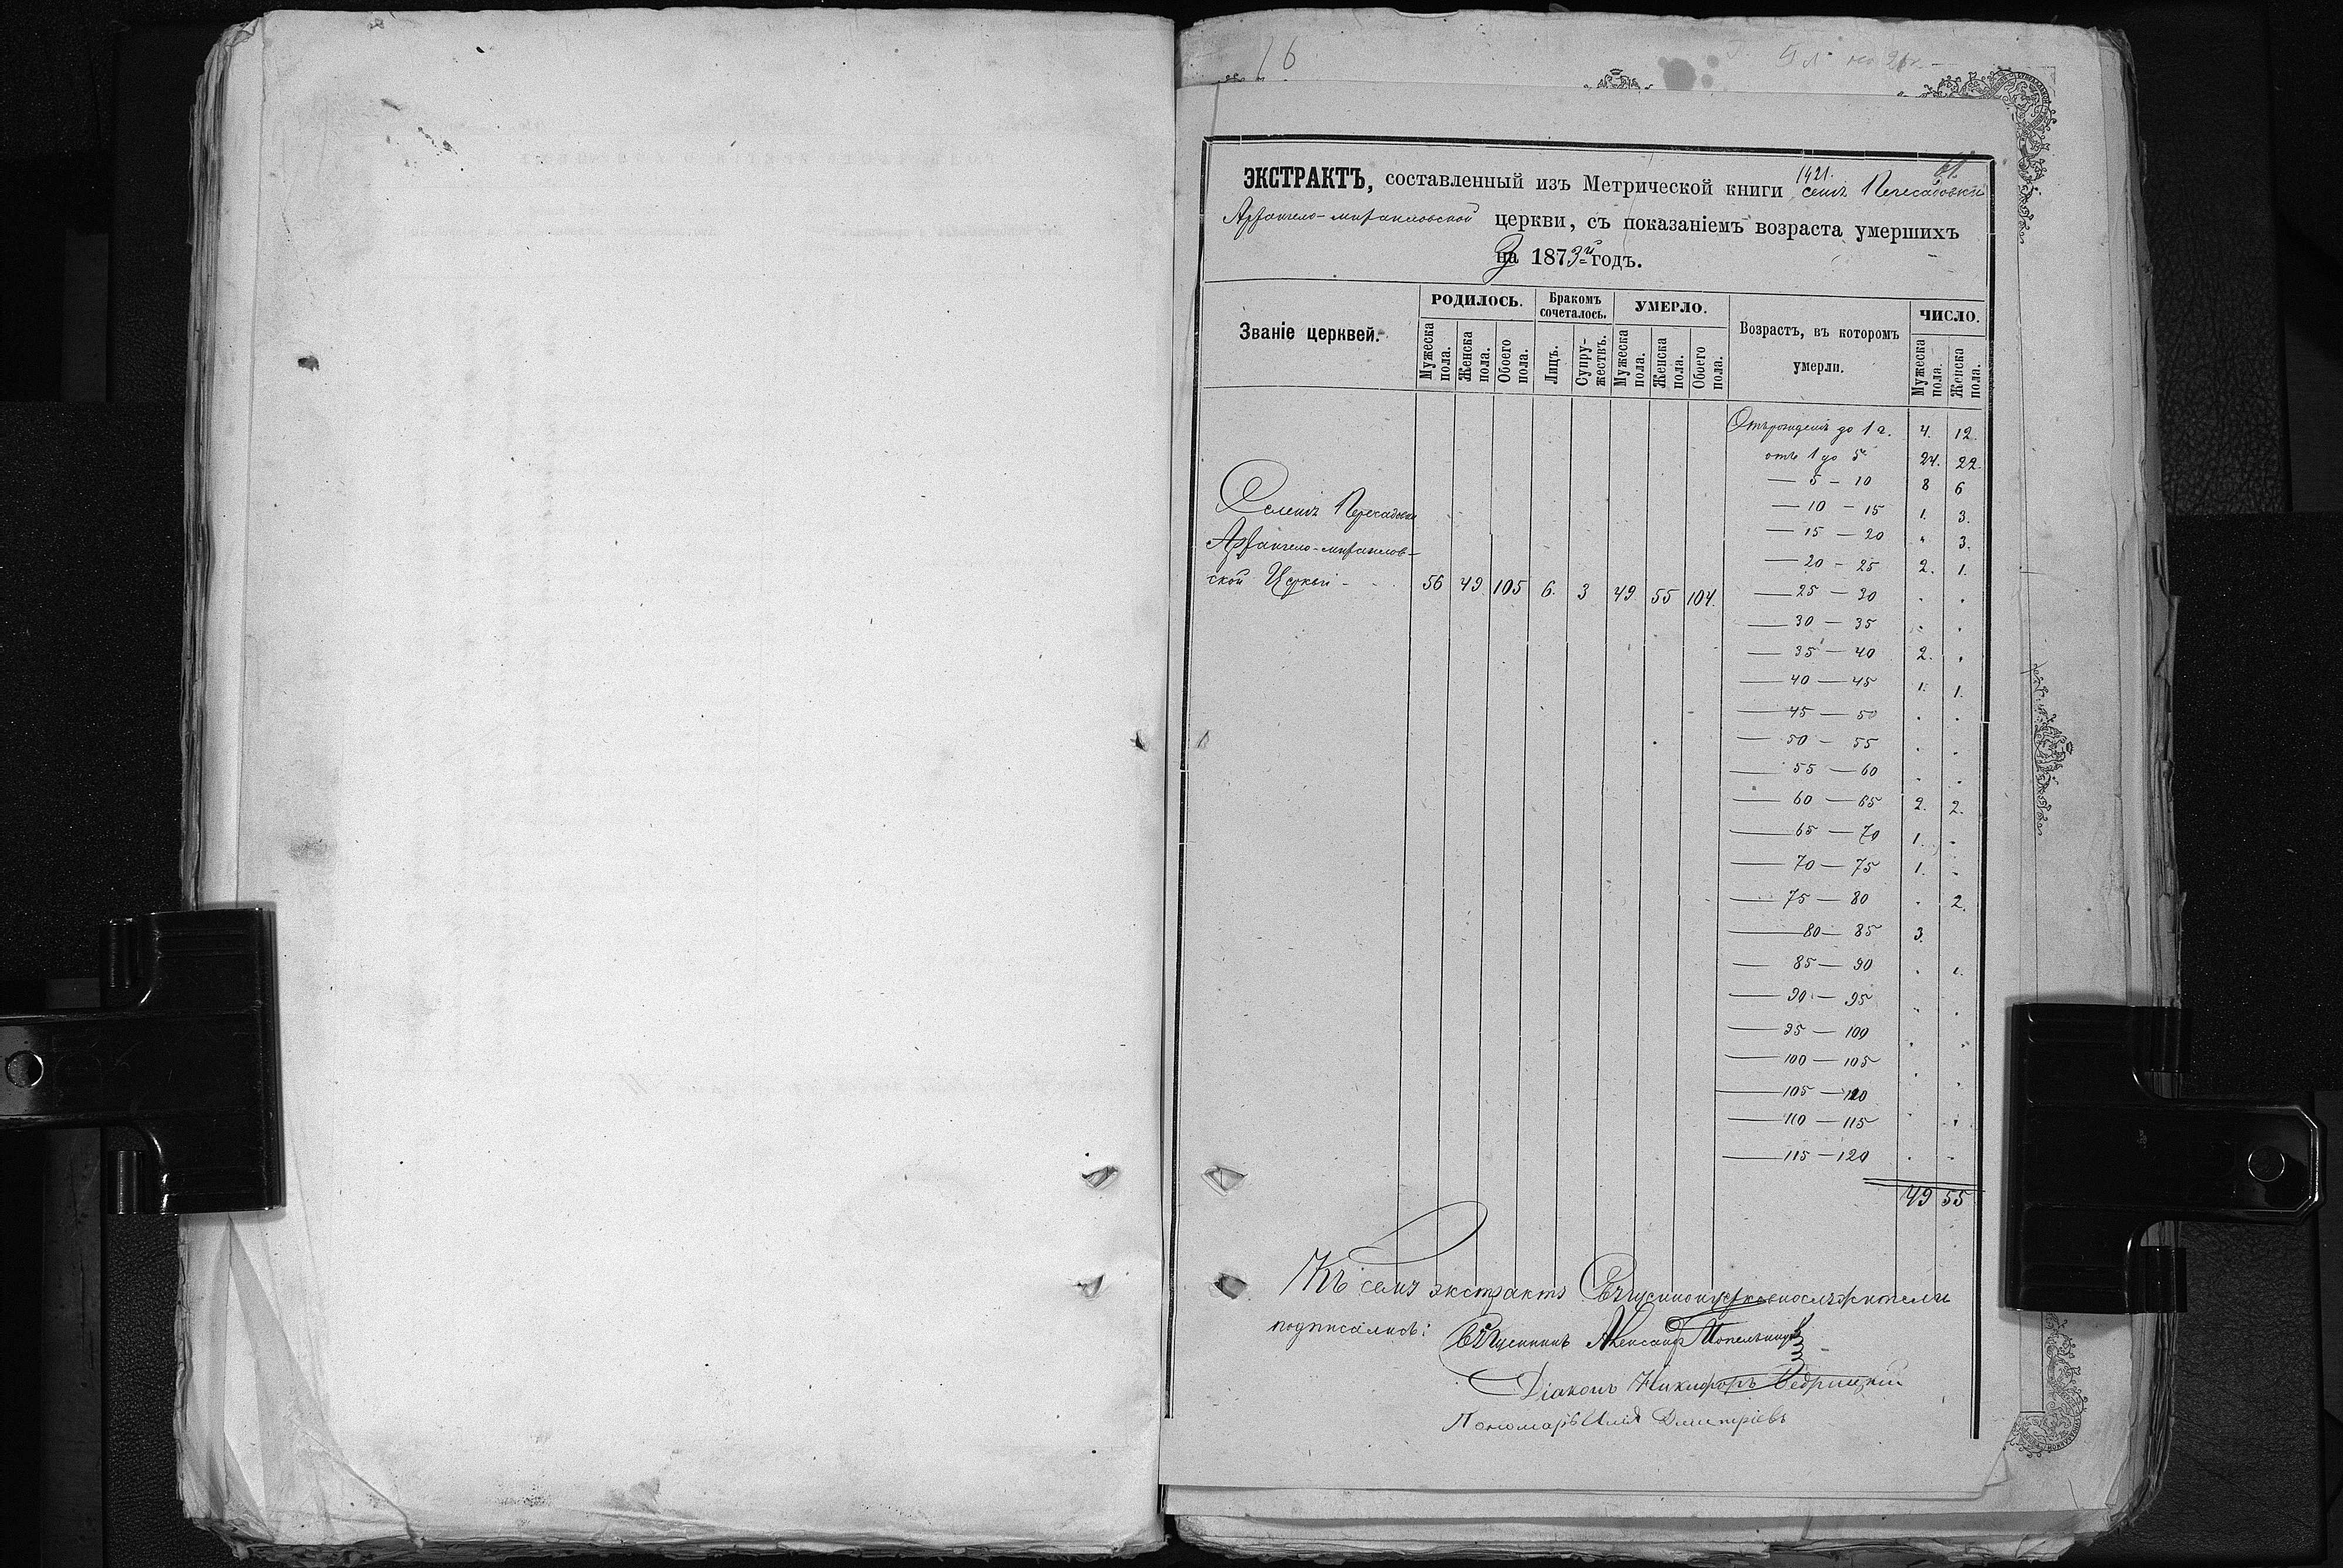 16
1421.
61.
ЭКСТРАКТЪ, составленный изъ Метрической книги селѣ Пересадовки
Архангело-михаиловской церкви, съ показаніемъ возраста умершихъ
за 1873й годъ.
Званіе церквей.
РОДИЛОСЬ.
Мужеска пола.
Женска пола.
Обоего пола.
Бракомъ сочеталось.
Лицъ.
Супружествъ.
УМЕРЛО.
Мужеска пола.
Женска пола.
Обоего пола.
Возрастъ, въ которомъ умерли.
ЧИСЛО.
Мужеска пола.
Женска пола.
Селеніѣ Пересадовки
Архангело-михаилов-
ской Церкви - 56 49 105 6. 3 49 55 104.
Отъ рожденія до 1 г. 4. 12.
отъ 1 до 5 24. 22.
— 5 — 10 8 6
— 10 — 15 1. 3.
— 15 — 20 " 3.
— 20 — 25 2. 1.
— 25 — 30 . .
— 30 — 35 . .
— 35 — 40 2. .
— 40 — 45 1. 1.
— 45 — 50 . .
— 50 — 55 . .
— 55 — 60 . .
— 60 — 65 2. 2.
— 65 — 70 1. .
— 70 — 75 1. .
— 75 — 80 . 2.
— 80 — 85 3.
— 85 — 90 . 1.
— 90 — 95 . .
— 95 — 100 . .
— 100 — 105 . .
— 105 — 110
— 110 — 115 . .
— 115 — 120 . -
49 55
Къ семъ экстрактѣ Священноцерковнослужители
подписались: Священникъ Александръ
Діаконъ Никифоръ Бедрицкій
Пономарь Илія Димитріевъ